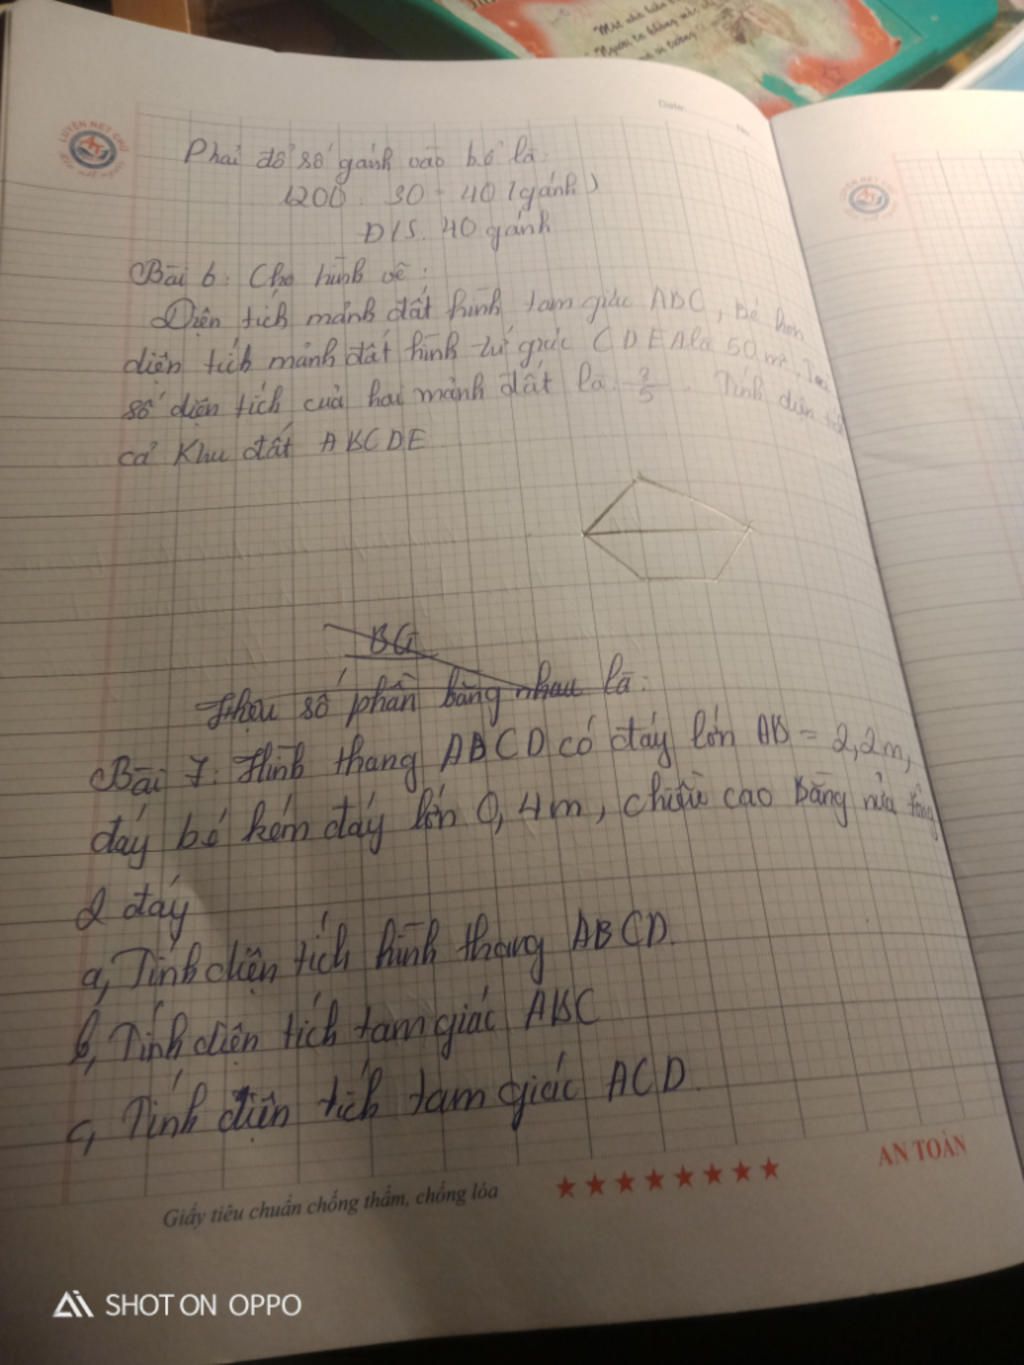 Một nhà hiền
Người ta bằng mặc
Date:
No:
LUYỆN NÉT CHỮ
Phải đổ số gánh vào bể là:
1200 : 30 = 40 (gánh)
Đ/S. 40 gánh
Bài 6: Cho hình vẽ:
Diện tích mảnh đất hình tam giác ABC, bé hơn
diện tích mảnh đất hình tứ giác CDEA là 50 m².
số diện tích của hai mảnh đất là 3/5. Tính diện tích
cả Khu đất ABCDE
BG
Hiệu số phần bằng nhau là:
Bài 7: Hình thang ABCD có đáy lớn AB = 2,2m,
đáy bé kém đáy lớn 0,4m, chiều cao bằng nửa tổng
2 đáy
a, Tính diện tích hình thang ABCD.
b, Tính diện tích tam giác ABC
c, Tính diện tích tam giác ACD.
Giấy tiêu chuẩn chống thấm, chống lóa
AN TOÀN
SHOT ON OPPO